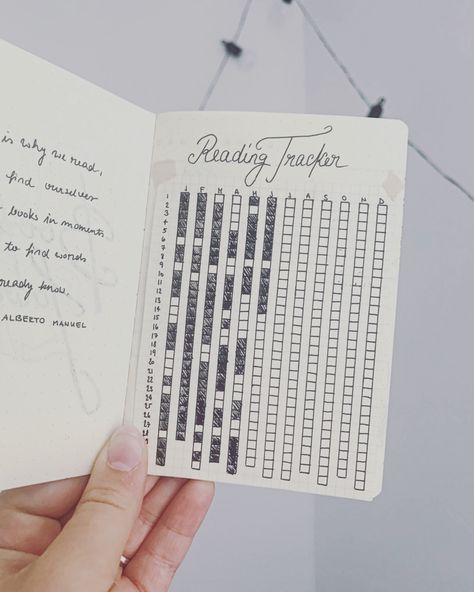 is why we read,
find ourselves
books in moments
to find words
ready know,
ALBERTO MANUEL
Reading Tracker
J F M A M J J A S O N D
1
2
3
4
5
6
7
8
9
10
11
12
13
14
15
16
17
18
19
20
21
22
23
24
25
26
27
28